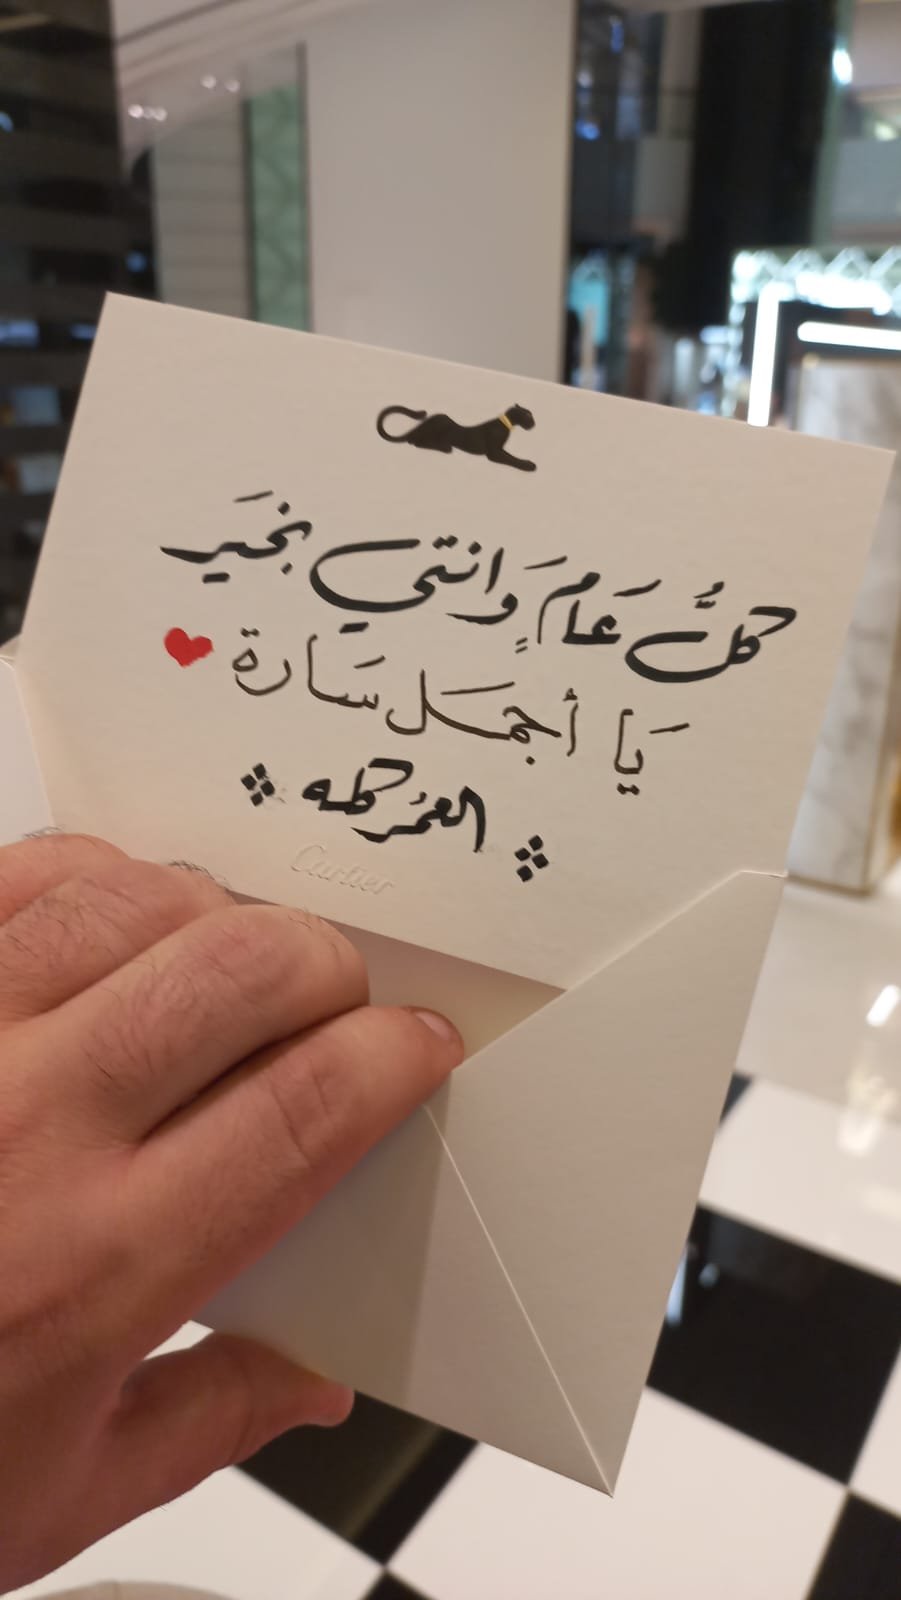 كلُّ عَامٍ وَانتي بخَير
يَا أجمَل سَارة ❤
العمُر كله
Cartier